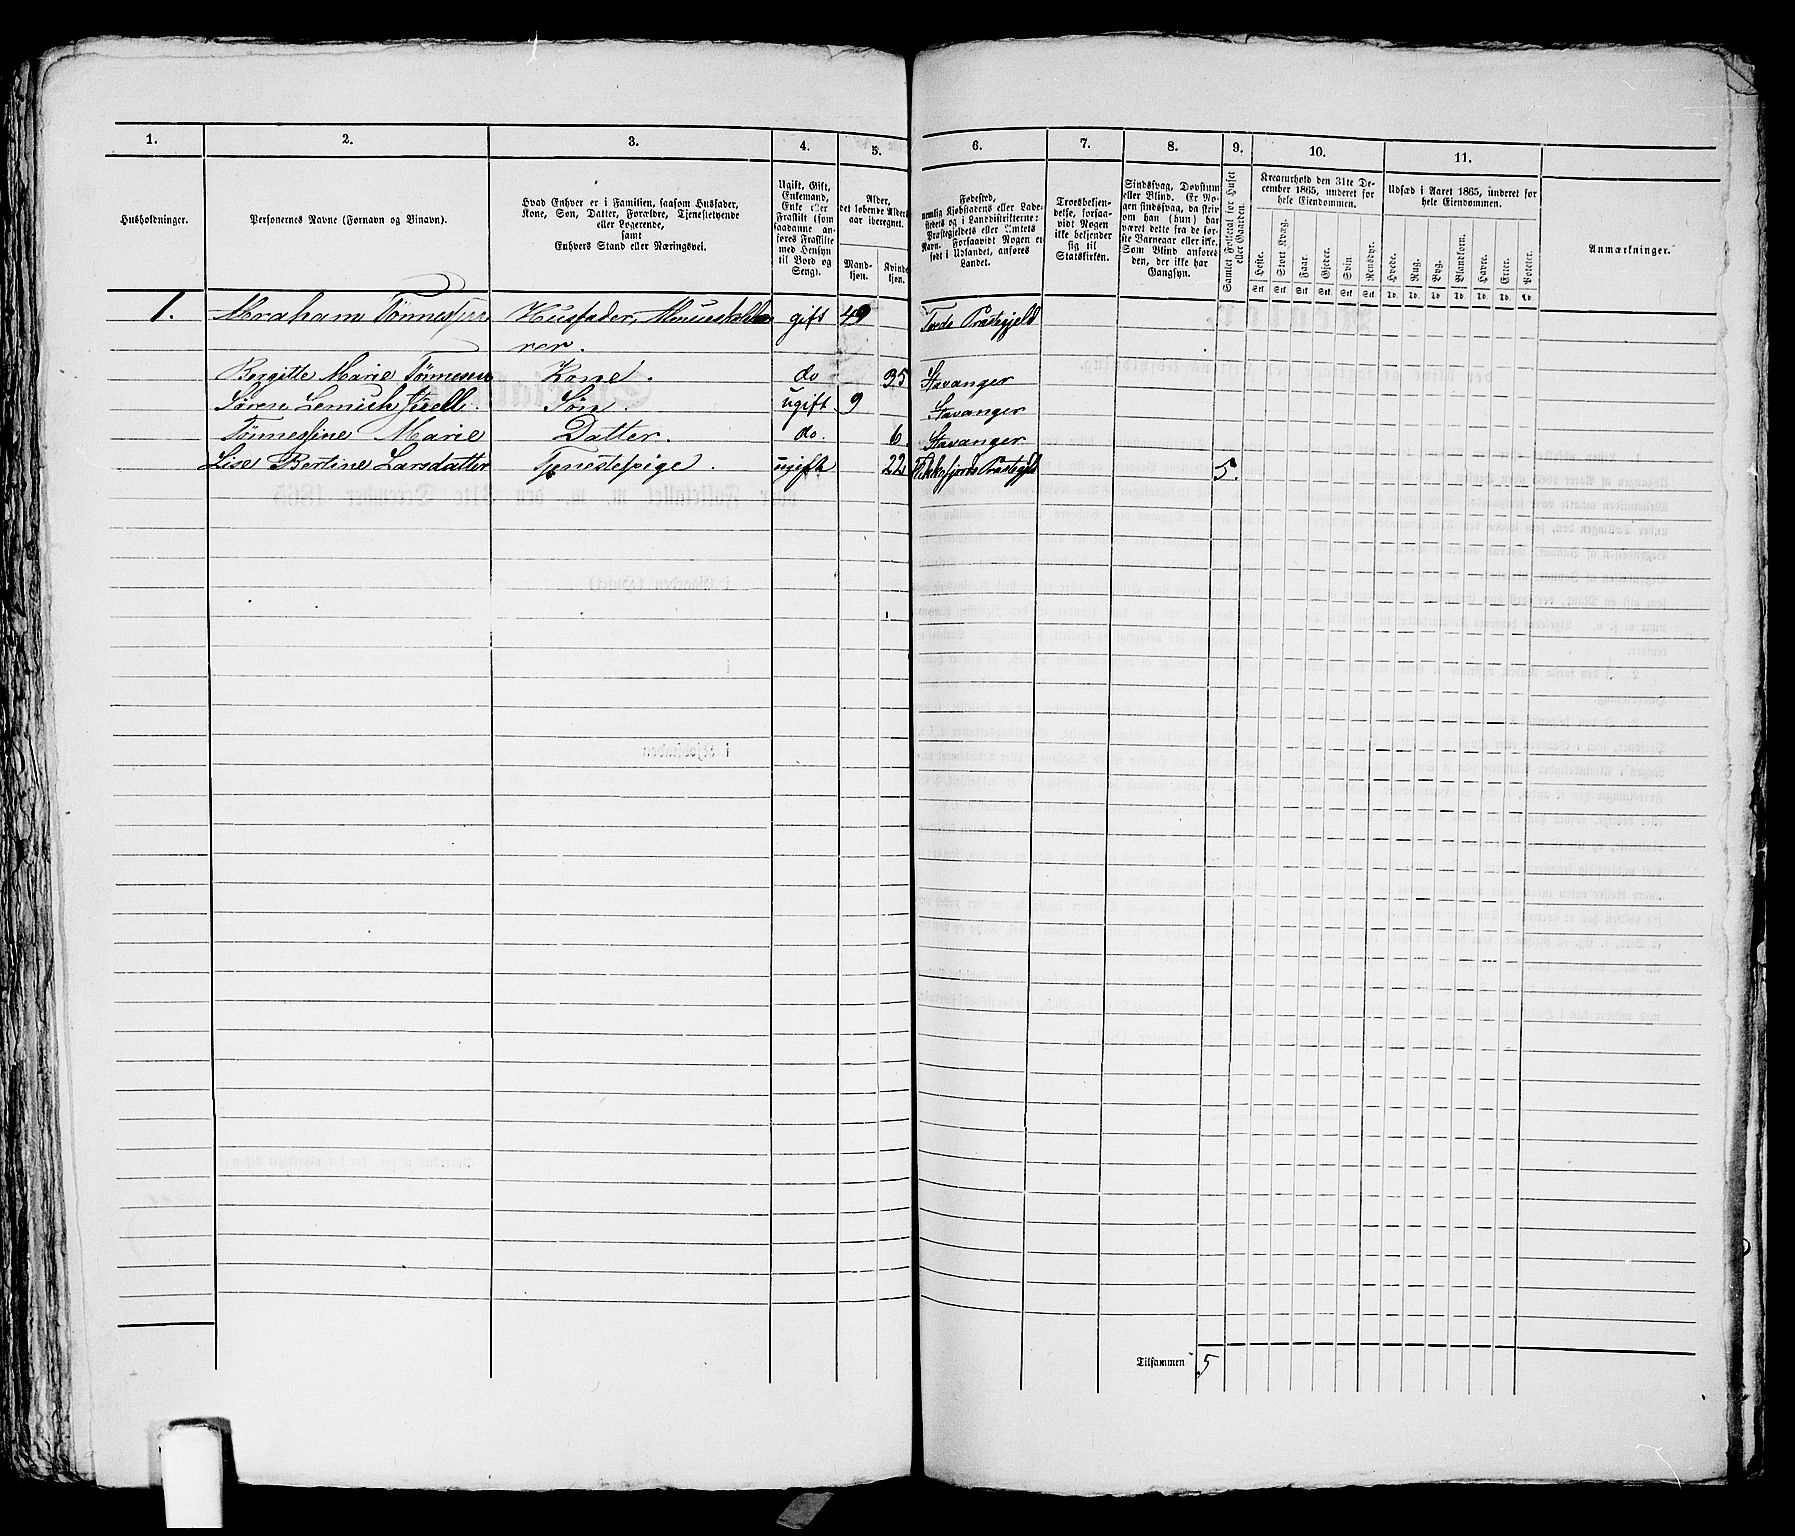 1. 2. 3. 4. 5. 6. 7. 8. 9. 10. 11.
Husholdninger.
Personernes Navne (Fornavn og Binavn).
Hvad Enhver er i Familien, saasom Husfader,
Kone, Søn, Datter, Forældre, Tjenestetyende
eller Logerende,
samt
Enhvers Stand eller Næringsvei.
Ugift, Gift,
Enkemand,
Enke eller
Fraskilt (som
saadanne an-
føres Fraskilte
med Hensyn
til Bord og
Seng).
Alder,
det løbende Alders-
aar iberegnet.
Mand-
kjøn.
Kvinde-
kjøn.
Fødested,
nemlig Kjøbstadens eller Lade-
stedets og i Landdistrikterne:
Præstegjeldets eller Amtets
Navn. Forsaavidt Nogen er
født i Udlandet, anføres
Landet.
Troesbekjen-
delse, forsaa-
vidt Nogen
ikke bekjender
sig til
Statskirken.
Sindssvag, Døvstum
eller Blind. Er No-
gen sindssvag, da skriv
om han (hun) har
været dette fra de før-
ste Barneaar eller ikke.
Som Blind anføres
den, der ikke har
Gangsyn.
Samlet Folketal for Huset
eller Gaarden.
Kreaturhold den 31te De-
cember 1865, underet for
hele Eiendommen.
Heste. Stort Kvæg. Faar. Gjeder. Svin. Rensdyr.
Stk. Stk. Stk. Stk. Stk. Stk.
Udsæd i Aaret 1865, underet for
hele Eiendommen.
Hvede. Rug. Byg. Blandkorn. Havre. Erter. Poteter.
Td. Td. Td. Td. Td. Td. Td.
Anmærkninger.
1. Abraham Husfader, gift 49 Præstegjeld
rer.
Bergitte Marie Kone. do 35 Stavanger
Søren Søn. ugift 9 Stavanger
Tønnesine Marie Datter. do. 6. Stavanger
Lise Bertine Larsdatter Tjenestepige. ugift 22 5.
Tilsammen 5